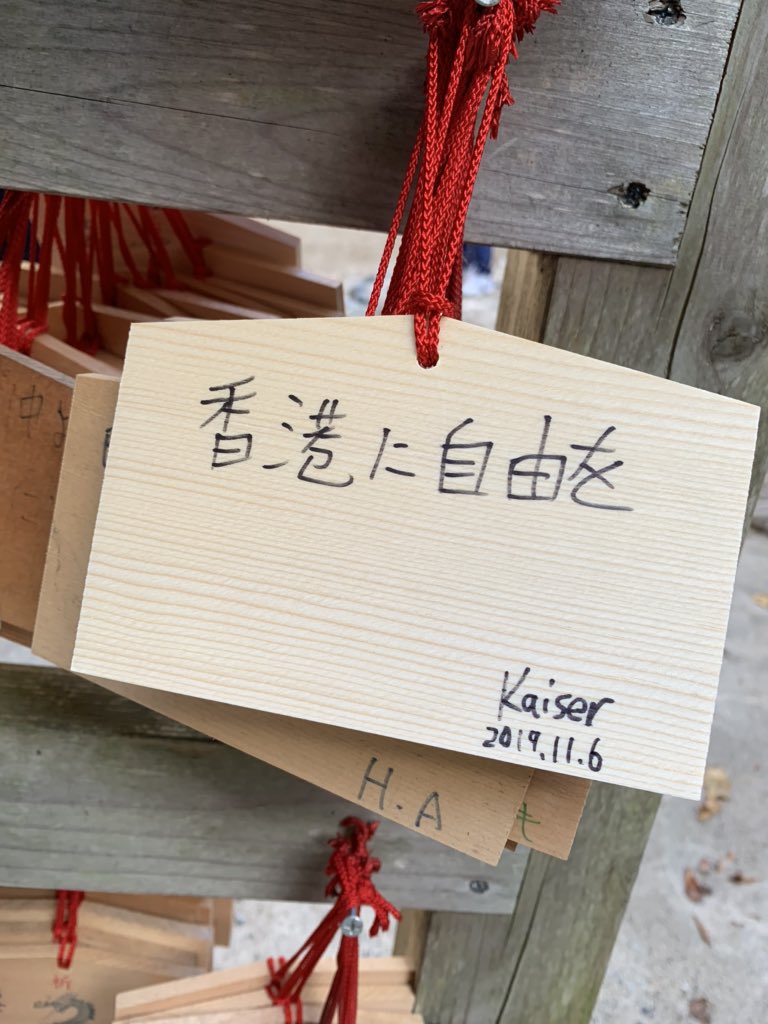 香港に自由を
Kaiser
2019.11.6
H.A
中
き
祈